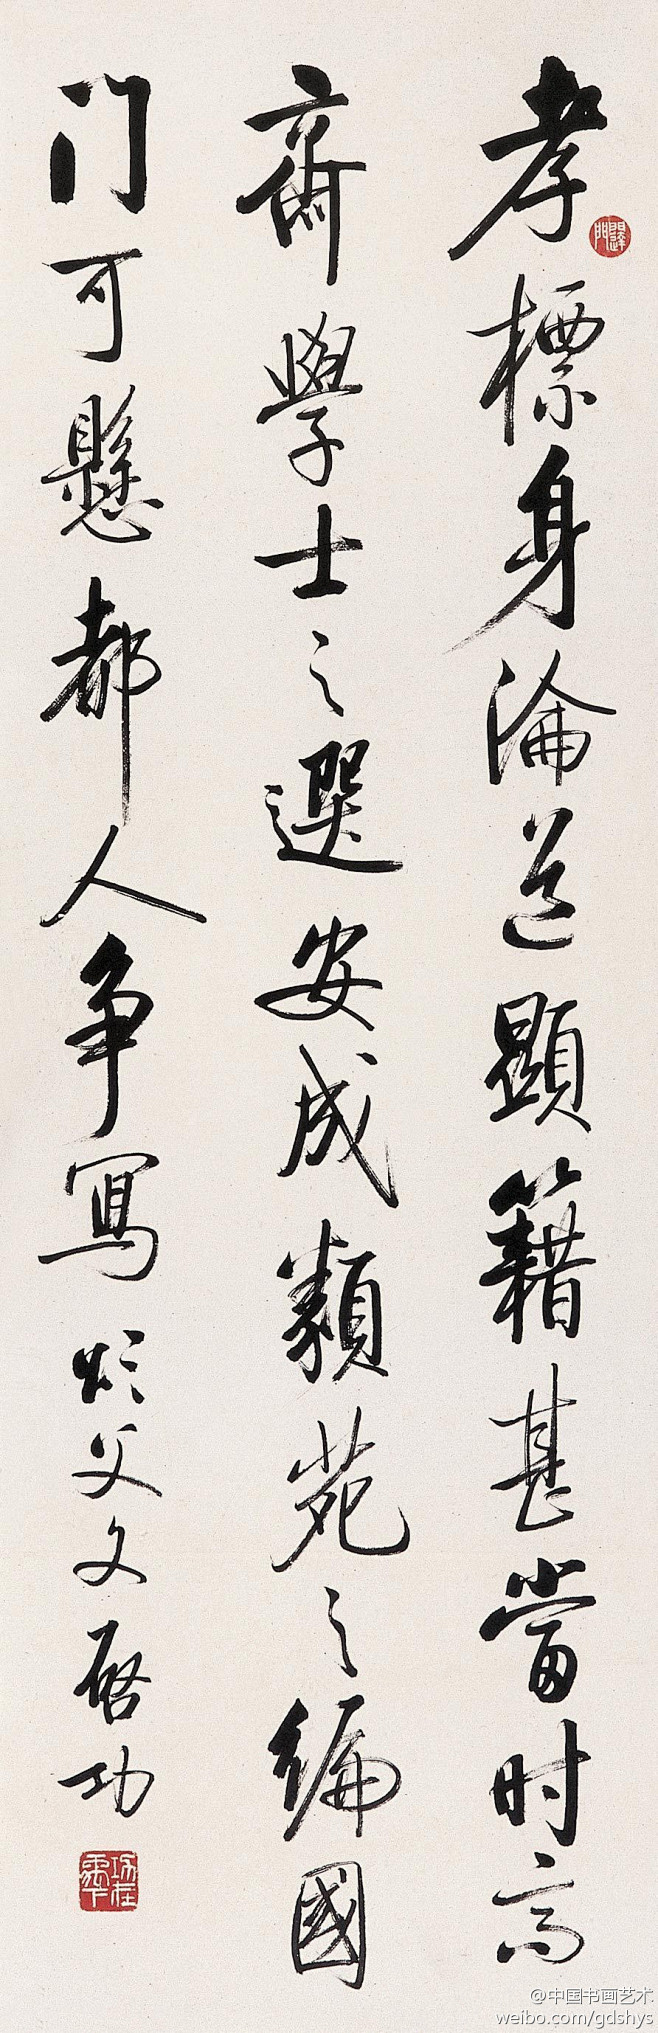 孝標身淪道顯籍甚當时高
齋學士之選安成類苑之編國
门可懸都人争寫
父文启功
@中国书画艺术
weibo.com/gdshys